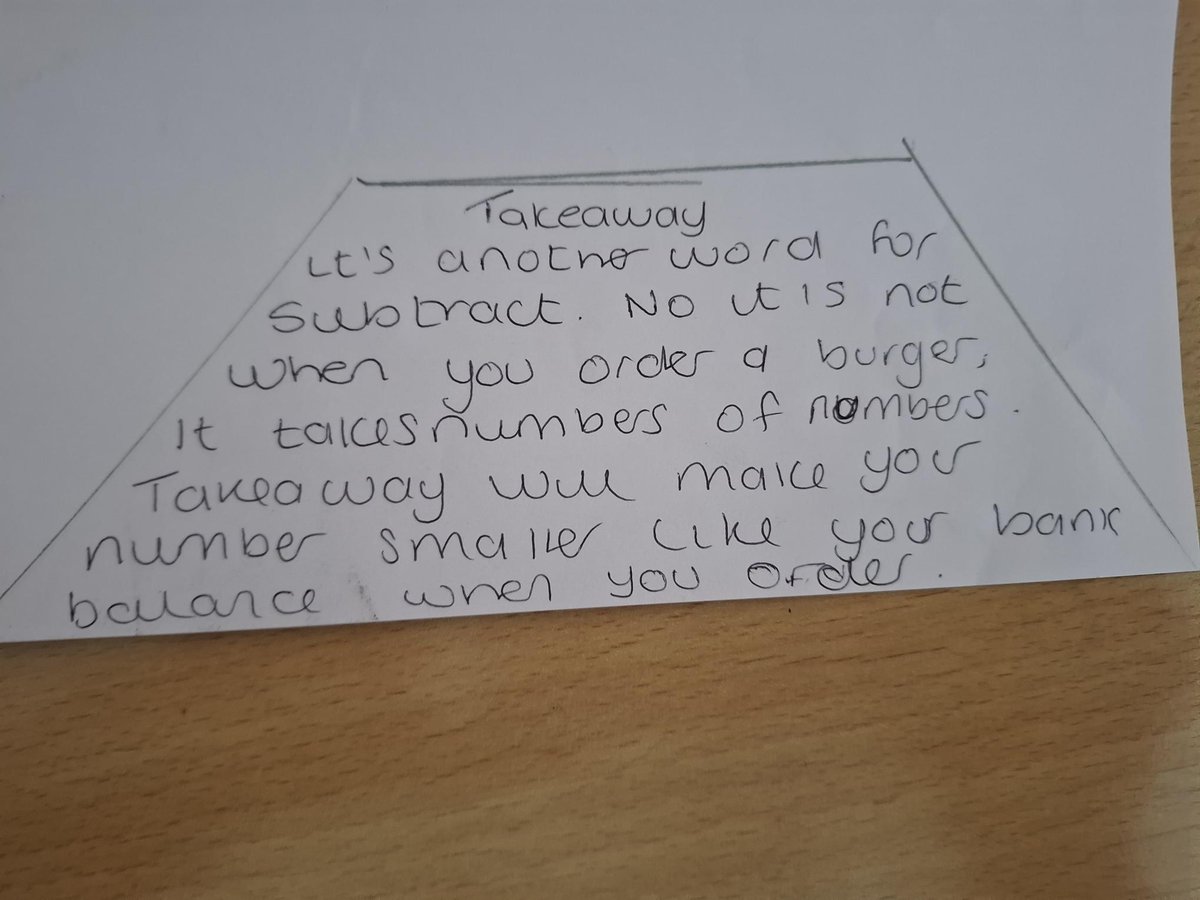 Takeaway
It's another word for
subtract. No it is not
when you order a burger,
It takes numbers of nombers.
Takeaway will make your
number smaller like your bank
balance when you order.